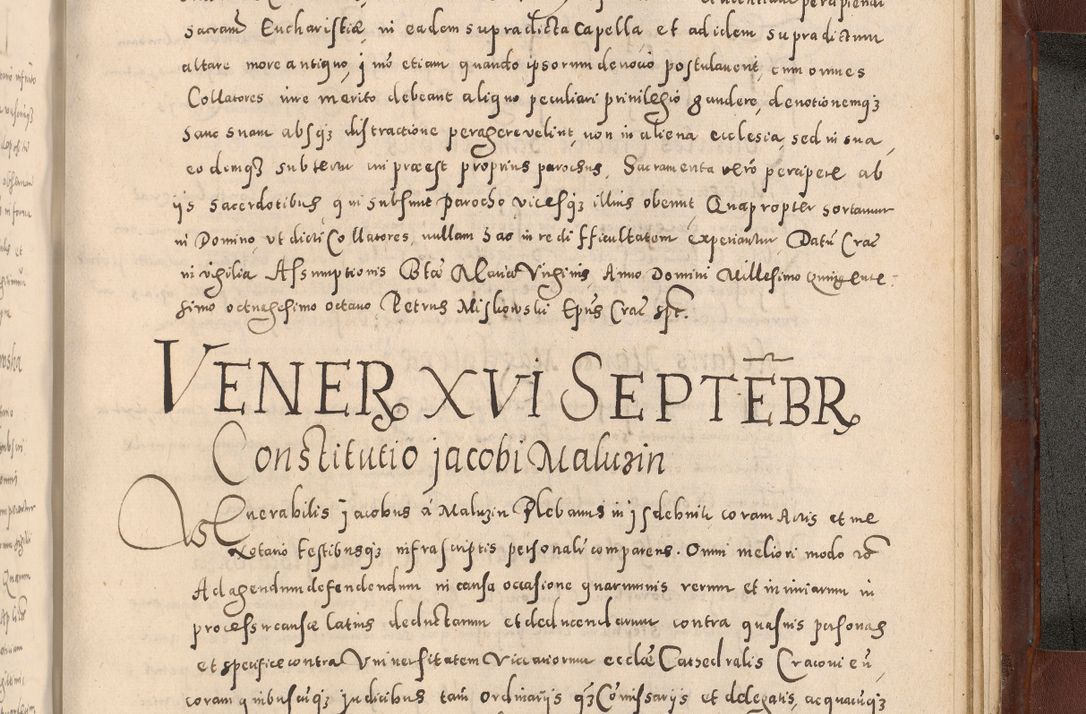 sacram Eucharistiæ, in eadem supradicta capella et ad idem supradictum
altare more antiquo, imo etiam quando ipsorum devotio postulaverit, cum omnes
Collatores iure merito debeant aliquo peculiari privilegio gaudere, devotionemqȝ
suam absqȝ distractione peragere velint, non in aliena ecclesia, sed in sua,
eodemqȝ subterem cui præest proprius parochus, Sacramenta verò percipere ab
iis sacerdotibus, qui subsunt parocho, vicesqȝ illius obeunt, Quapropter sortamur
in Domino, vt dicti Collatores, nullam in re difficultatem experiantur, Datū Crac
in vigilia Assumptionis Btæ Mariæ Virginis, Anno Domini Millesimo Quingente-
simo octuagesimo octavo, Petrus Miskowski Epūs Crac sst.
VENER XVI SEPTĒBR
Constitutio jacobi Maluzin
Venerabilis Jacobus á Maluzin Plebanus in coram Actis et me
Notario testibusqȝ infrascriptis personalr comparens. Omni meliori modo
Ad agendum defendendum in causa occasione quarumvis rerum et iniuriarum in
processu causæ latius deductarum et deducendarum contra quasvis personas
et specifice contra Vniversitatem Vicariorum ecclæ Cathedralis Cracovien
coram quibuscūqȝ judicibus tam ordinariis qȝ Comissariis et delegatis, ac quacūqȝ